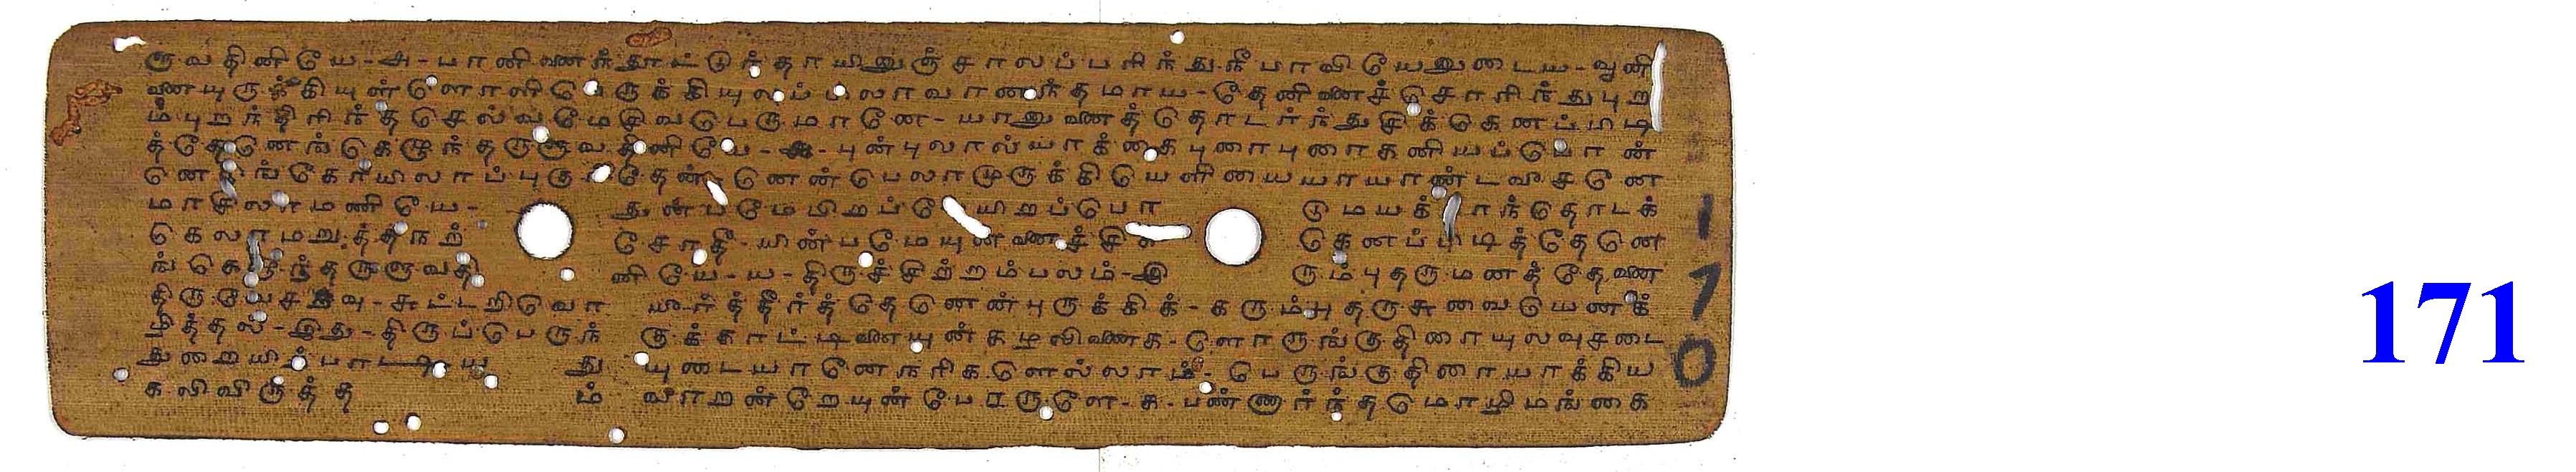 ருவதினியே-அ-பானினைந்தூட்டுந்தாயினுஞ்சாலப்பரிந்துநீபாவியேனுடைய-வூனி
னையுருக்கியுள்ளொளிபெருக்கியுலப்பிலாவானந்தமாய-தேனினைச்சொரிந்துபுற
ம்புறந்திரிந்தசெல்வமேசிவபெருமானே-யானுனைத்தொடர்ந்துசிக்கெனப்பிடி
த்தேனெங்கெழுந்தருளுவதினியே- -புன்புலால்யாக்கைபுரைபுரைகனியப்பொன்
னெடுங்கோயிலாப்புகுந்தென்னென்பெலாமுருக்கியெளியையாயாண்டவீசனே
மாசிலாமணியே- துன்பமேபிறப்பேயிறப்பொ டுமயக்காந்தொடக்
கெலாமறுத்தநற் சோதீ-யின்பமேயுன்னைச்சிக் கெனப்பிடித்தேனெ
ங்கெழுந்தருளுவதி னியே-ய-திருச்சிற்றம்பலம்-இ ரும்புதருமனத்தேனை
திருவேசறவு-சுட்டறிவொ யீர்த்தீர்த்தென்னென்புருக்கிக்-கரும்புதருசுவையெனக்
ழித்தல்-இது-திருப்பெருந் குக்காட்டினையுன்கழலிணைக-ளொருங்குதிரையுலவுசடை
துறையிற்பாடியது யுடையானேநரிகளெல்லாம்-பெருங்குதிரையாக்கிய
கலிவிருத்தம் வாறன்றேயுன்பேரருளே-க-பண்ணார்ந்தமொழிமங்கை
170
171